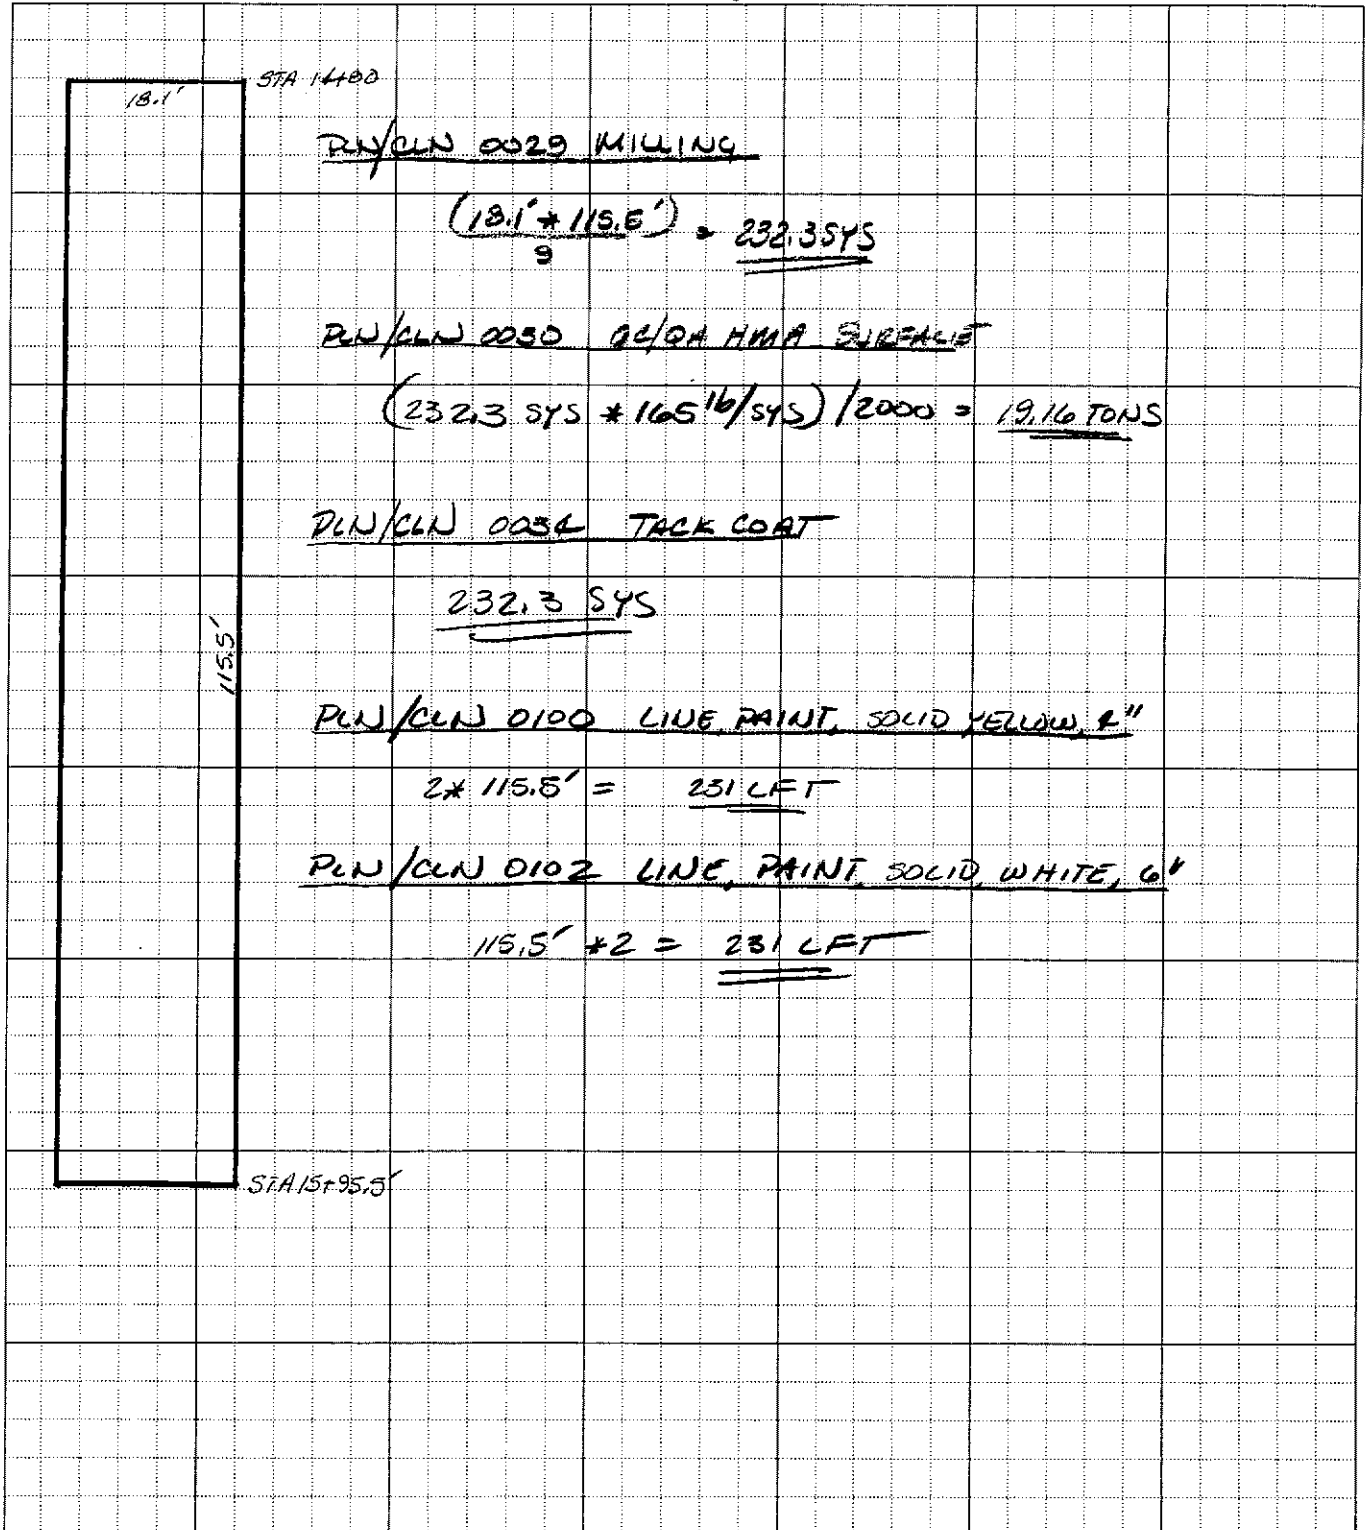 STA 14+80
18.1'
PLN/CLN 0029 MILLING
(18.1' * 115.5')
9
= 232.3 SYS
PLN/CLN 0030 QC/QA HMA SURFACE
(232.3 SYS * 165 lb/SYS) /2000 = 19.16 TONS
PLN/CLN 0034 TACK COAT
232.3 SYS
115.5'
PLN/CLN 0100 LINE, PAINT, SOLID YELLOW, 4"
2* 115.5' = 231 LFT
PLN/CLN 0102 LINE, PAINT, SOLID, WHITE, 6"
115.5' *2 = 231 LFT
STA 15+95.5'